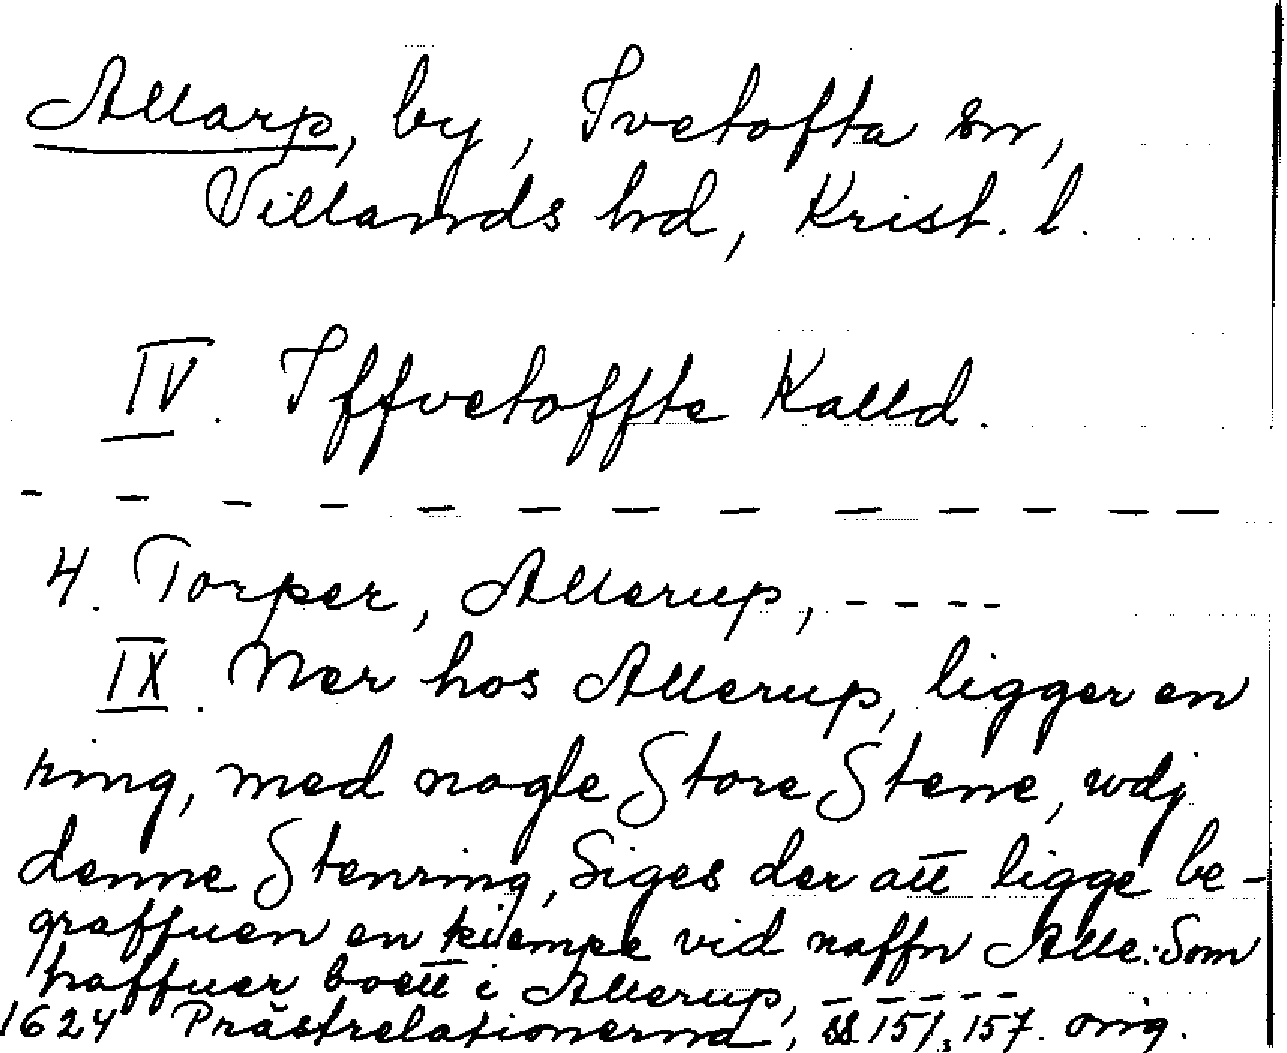 Allarp, by, Ivetofta sn,
Villands hd, Krist. l.
IV. Iffvetoffte Kalld.
- - - - - - - - - - - - -
4. Torper, Allerup, - - - -
IX. Ner hos Allerup, ligger en
ring, med nogle Store Stene, wdj
denne Stenring, Siges der att ligge be-
graffuen en kiempe vid naffn Alle: Som
haffuer boett i Allerup, - - - - -
1624 Prästrelationerna, ss 151, 157. orig.